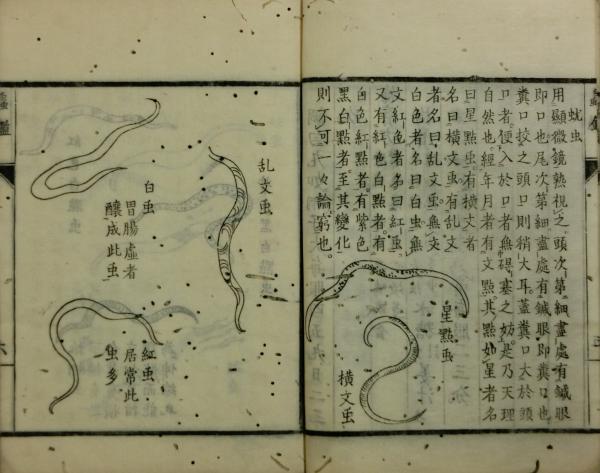 蚘虫
用顯微鏡熟視之頭次第細盡處有鍼眼
即口也尾次第細盡處有鍼眼即糞口也
糞口挍之頭口則稍大耳蓋糞口大於頭
口者便入於口者無碍塞之妨是乃天理
自然也經年月者有文㸃其㸃如星者名
曰星㸃虫有横文者
名曰横文虫有乱文
者名曰乱文虫無文
白色者名曰白虫無
文紅色者名曰紅虫
又有紅色白㸃者有
白色紅㸃者有紫色
黑白㸃者至其變化
則不可一々論窮也
星㸃虫
横文虫
乱文虫
白虫
胃腸虚者
釀成此虫
紅虫
居常此
虫多